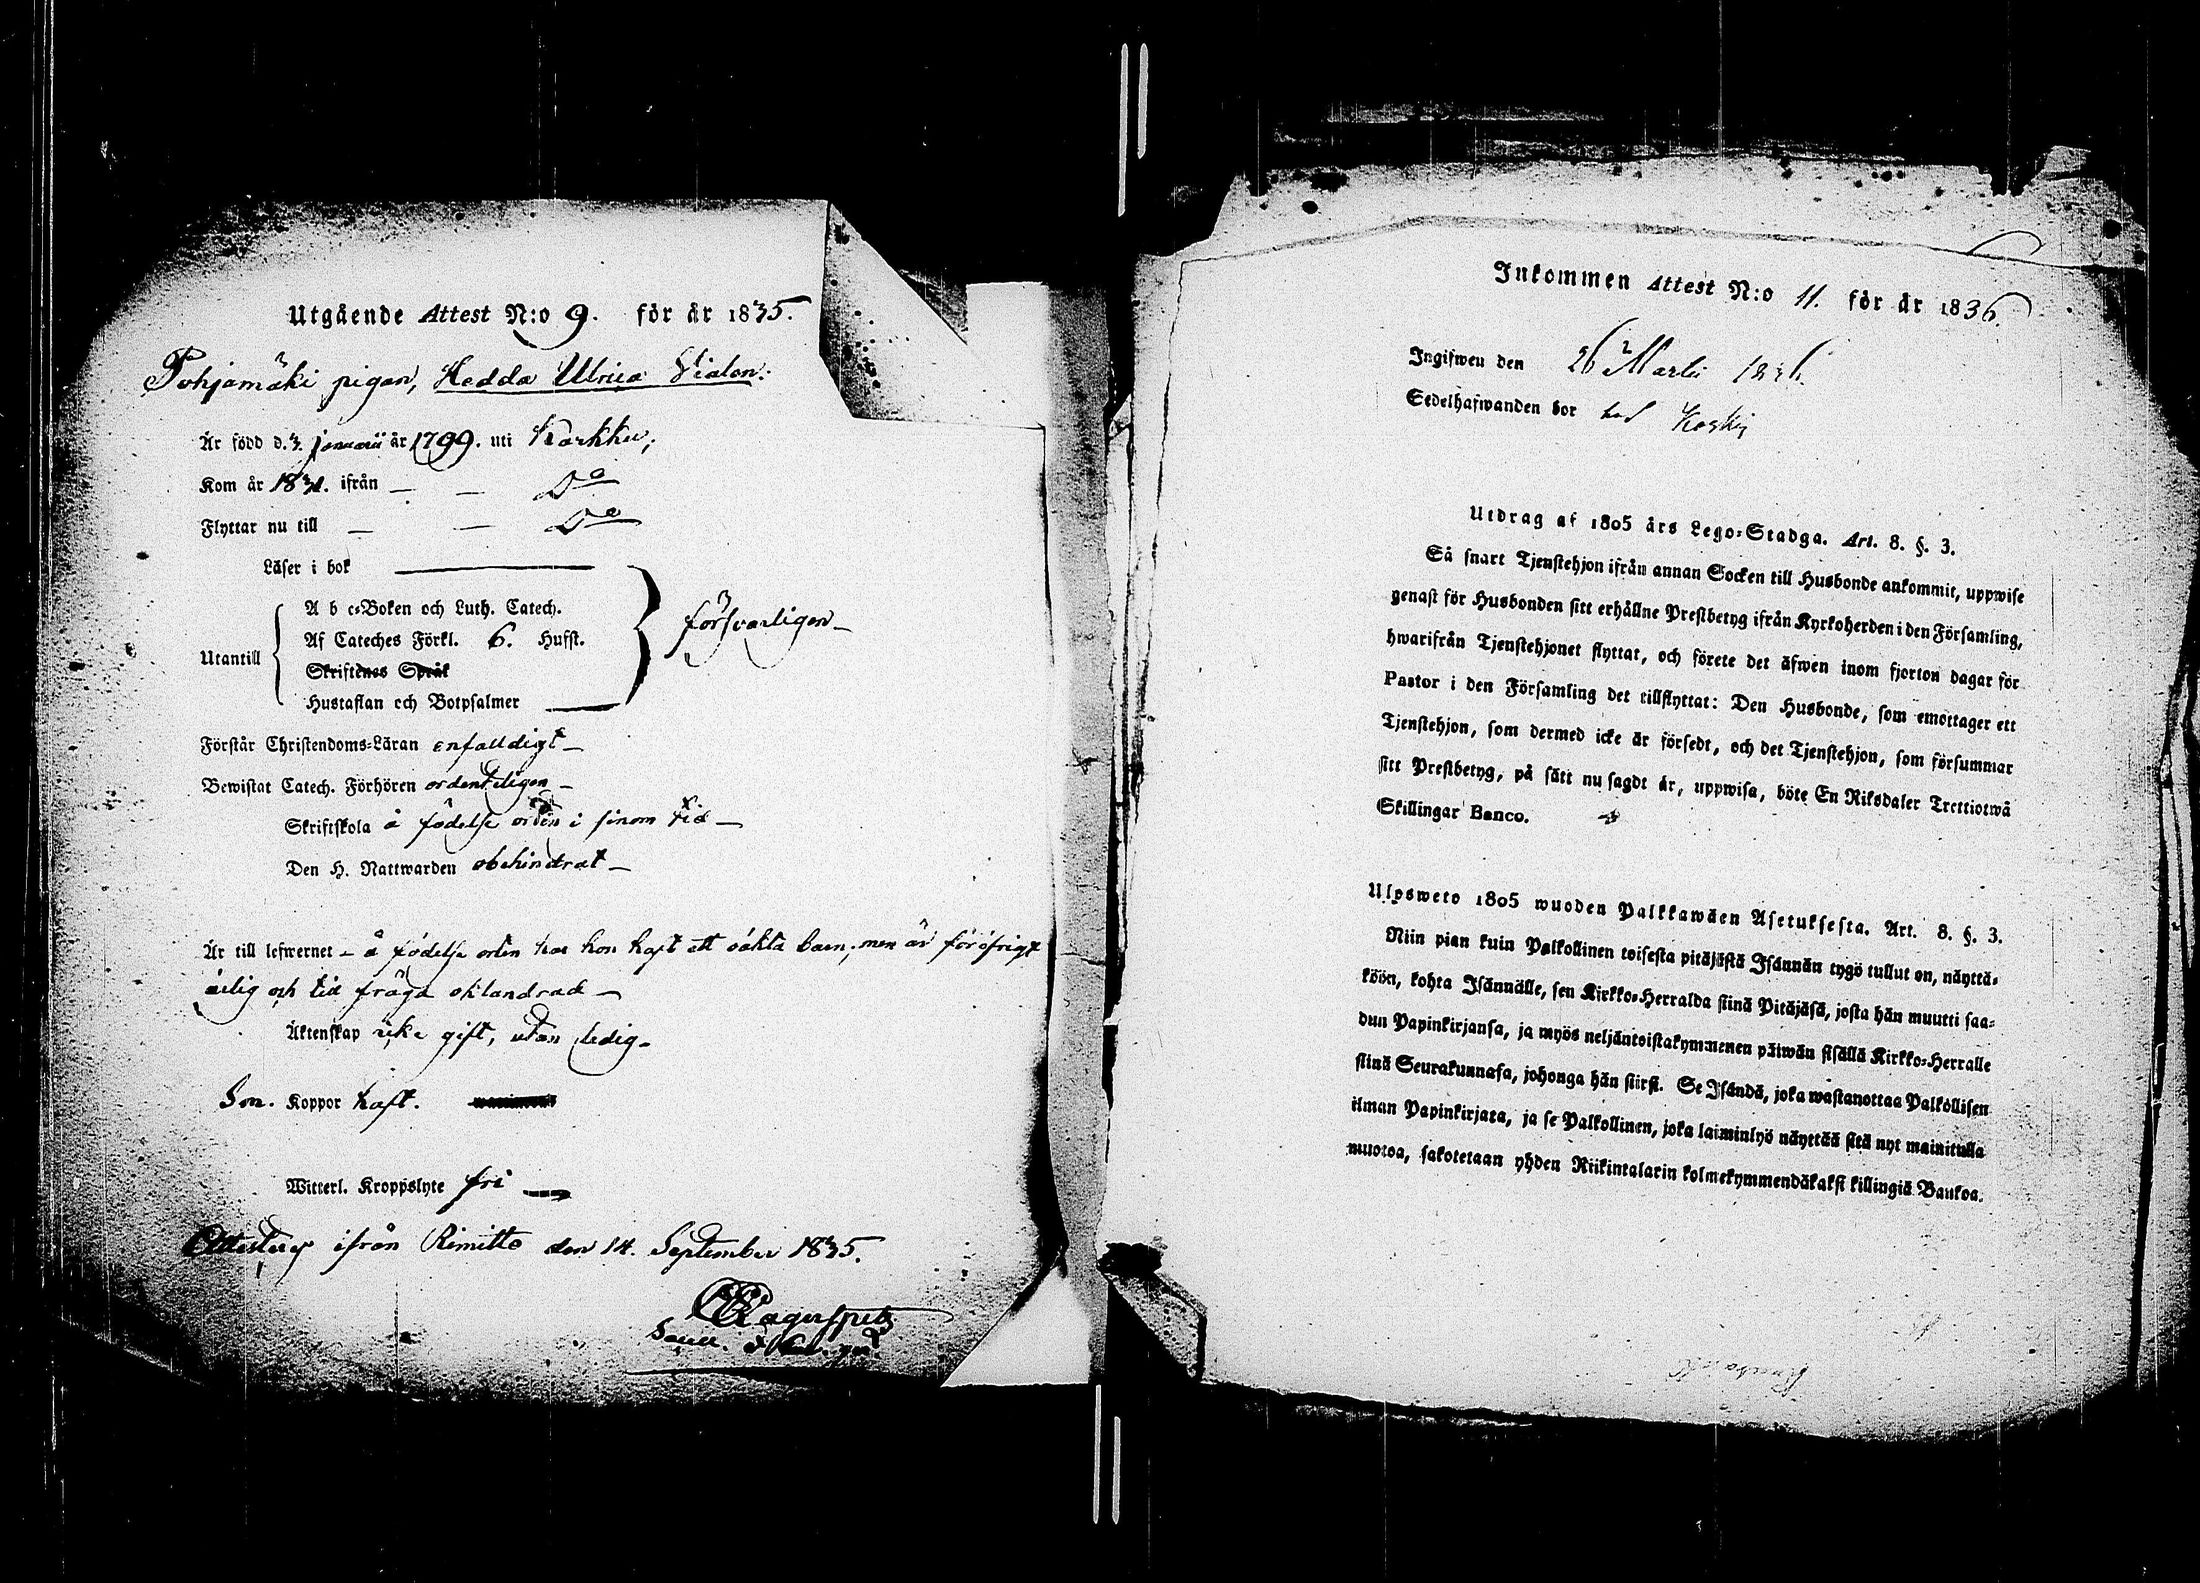 Utgående Attest N:o 9. för år 1835.
Pohjamäki pigan, Hedda Ulrica
Är född d. 3. januarii år 1799. uti Karkku,
Kom år 1831. ifrån — — Do
Flyttar nu till — — Do
Läser i bok
A b c-Boken och Luth. Catech.
Af Cateches Förkl. 6. Hufst.
Utantill
försvarligen —
Skriftenes Språk
Hustaflan och Botpsalmer
Förstår Christendoms-Läran enfalldigt —
Bewistat Catech. Förhören ordenteligen —
Skriftskola å födelse orten i sinom tid —
Den H. Nattwarden obehindrat —
Är till lefwernet — å födelse orten har hon haft ett oäkta barn; men är föröfrigt
ärlig och tid fräga oklandrad —
Äktenskap icke gift, utan ledig.
Son. Koppor haft.
Witterl. Kroppslyte fri —
Attesterar ifrån Rimitto den 14. September 1835.
Inkommen Attest N:o 11. för år 1836.
Ingifwen den 26 Martii 1836.
Sedelhafwanden bor
Utdrag af 1805 års Lego-Stadga. Art. 8. §. 3.
Så snart Tjenstehjon ifrån annan Socken till Husbonde ankommit, uppwise
genast för Husbonden sitt erhållne Prestbetyg ifrån Kyrkoherden i den Församling,
hwarifrån Tjenstehjonet flyttat, och förete det äfwen inom fjorton dagar för
Pastor i den Församling det tillflyttat: Den Husbonde, som emottager ett
Tjenstehjon, som dermed icke är försedt, och det Tjenstehjon, som försummar
sitt Prestbetyg, på sätt nu sagdt är, uppwisa, böte En Riksdaler Trettiotwå
Skillingar Banco.
Ulosweto 1805 wuoden Palkkawäen Asetuksesta. Art. 8. §. 3.
Niin pian kuin Palkollinen toisesta pitäjästä Isännän tygö tullut on, näyttä-
köön, kohta Isännälle, sen Kirkko-Herralda siinä Pitäjäsä, josta hän muutti saa-
dun Papinkirjansa, ja myös neljäntoistakymmenen päiwän sisällä Kirkko-Herralle
siinä Seurakunnasa, johonga hän siirsi. Se Isändä, joka wastanottaa Palkollisen
ilman Papinkirjata, ja se Palkollinen, joka laiminlyö näyttää sitä nyt mainitulla
muotoa, sakotetaan yhden Riikintalarin kolmekymmendäkaksi killingiä Bankoa.